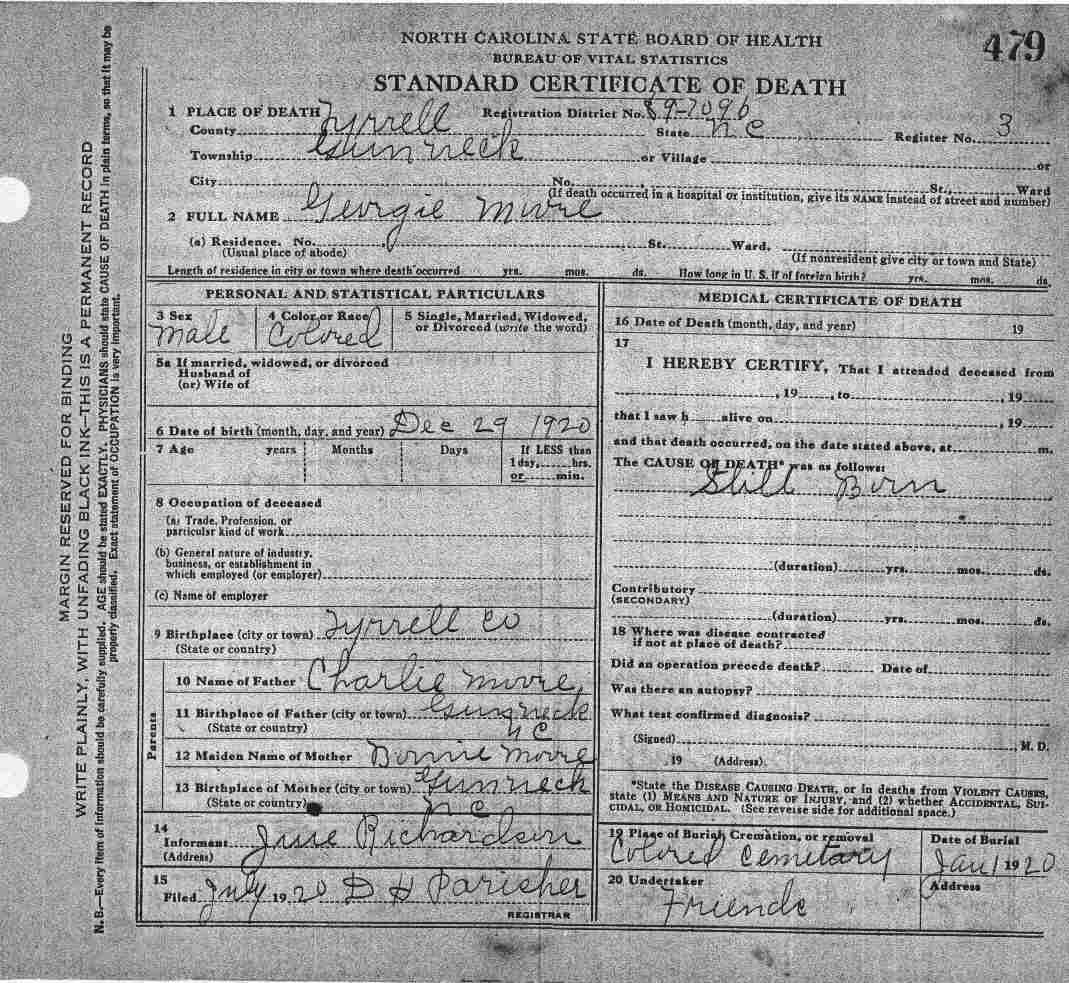 479
NORTH CAROLINA STATE BOARD OF HEALTH
BUREAU OF VITAL STATISTICS
STANDARD CERTIFICATE OF DEATH
1 PLACE OF DEATH Registration District No. 89-7096
County Tyrrell State N C Register No. 3
Township Gum neck or Village or
City No. St., Ward
(If death occurred in a hospital or institution, give its NAME instead of street and number)
2 FULL NAME Georgie Moore
(a) Residence. No. St. Ward.
(Usual place of abode) (If nonresident give city or town and State)
Length of residence in city or town where death occurred yrs. mos. ds. How long in U. S. if of foreign birth? yrs. mos. ds.
PERSONAL AND STATISTICAL PARTICULARS
3 Sex 4 Color or Race 5 Single, Married, Widowed,
or Divorced (write the word)
Male Colored
5a If married, widowed, or divorced
Husband of
(or) Wife of
6 Date of birth (month, day, and year) Dec 29 1920
7 Age years Months Days If LESS than
1 day, hrs.
or min.
8 Occupation of deceased
(a) Trade, Profession, or
particular kind of work
(b) General nature of industry,
business, or establishment in
which employed (or employer)
(c) Name of employer
9 Birthplace (city or town) Tyrrell Co
(State or country)
Parents
10 Name of Father Charlie Moore
11 Birthplace of Father (city or town) Gum neck
(State or country) N C
12 Maiden Name of Mother Bonnie Moore
13 Birthplace of Mother (city or town) Gum neck
(State or country) N C
14
Informant June Richardson
(Address)
15
Filed July 1920 D H Parisher
REGISTRAR
MEDICAL CERTIFICATE OF DEATH
16 Date of Death (month, day, and year) 19
17
I HEREBY CERTIFY, That I attended deceased from
, 19 , to , 19
that I saw h alive on , 19
and that death occurred, on the date stated above, at m.
The CAUSE OF DEATH* was as follows:
Still Born
(duration) yrs. mos. ds.
Contributory
(SECONDARY)
(duration) yrs. mos. ds.
18 Where was disease contracted
if not at place of death?
Did an operation precede death? Date of
Was there an autopsy?
What test confirmed diagnosis?
(Signed) , M. D.
, 19 (Address)
*State the DISEASE CAUSING DEATH, or in deaths from VIOLENT CAUSES,
state (1) MEANS AND NATURE OF INJURY, and (2) whether ACCIDENTAL, SUI-
CIDAL, or HOMICIDAL. (See reverse side for additional space.)
19 Place of Burial, Cremation, or removal Date of Burial
Colored Cemetary Jan 1 1920
20 Undertaker Address
Friends
MARGIN RESERVED FOR BINDING
WRITE PLAINLY, WITH UNFADING BLACK INK—THIS IS A PERMANENT RECORD
N. B.—Every item of information should be carefully supplied. AGE should be stated EXACTLY. PHYSICIANS should state CAUSE OF DEATH in plain terms, so that it may be
properly classified. Exact statement of OCCUPATION is very important.